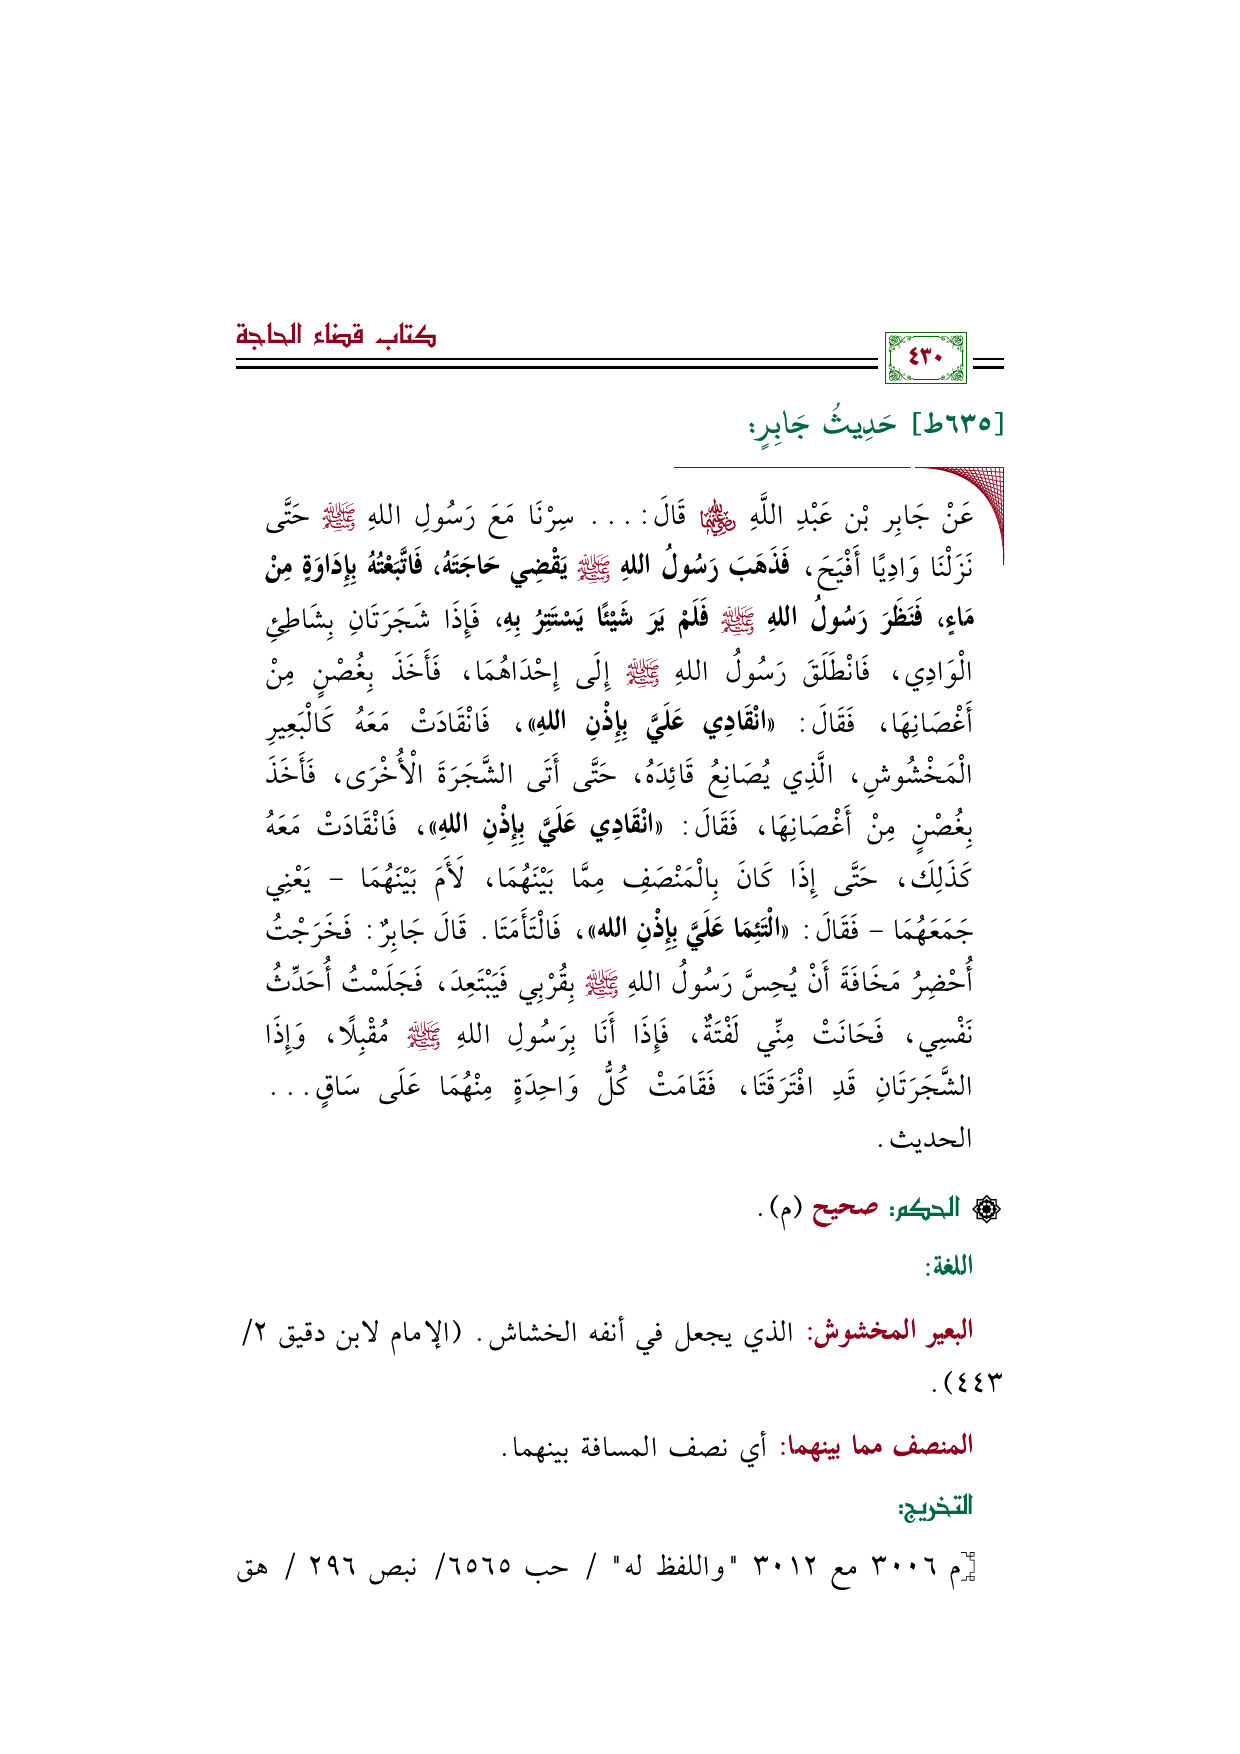 كتاب قضاء الحاجة
٤٣٠
[٦٣٥ط] حَدِيثُ جَابِرٍ:
عَنْ جَابِرِ بْنِ عَبْدِ اللَّهِ ﵄ قَالَ: ... سِرْنَا مَعَ رَسُولِ اللهِ ﷺ حَتَّى
نَزَلْنَا وَادِيًا أَفْيَحَ، فَذَهَبَ رَسُولُ اللهِ ﷺ يَقْضِي حَاجَتَهُ، فَاتَّبَعْتُهُ بِإِدَاوَةٍ مِنْ
مَاءٍ، فَنَظَرَ رَسُولُ اللهِ ﷺ فَلَمْ يَرَ شَيْئًا يَسْتَتِرُ بِهِ، فَإِذَا شَجَرَتَانِ بِشَاطِئِ
الْوَادِي، فَانْطَلَقَ رَسُولُ اللهِ ﷺ إِلَى إِحْدَاهُمَا، فَأَخَذَ بِغُصْنٍ مِنْ
أَغْصَانِهَا، فَقَالَ: «انْقَادِي عَلَيَّ بِإِذْنِ اللهِ»، فَانْقَادَتْ مَعَهُ كَالْبَعِيرِ
الْمَخْشُوشِ، الَّذِي يُصَانِعُ قَائِدَهُ، حَتَّى أَتَى الشَّجَرَةَ الْأُخْرَى، فَأَخَذَ
بِغُصْنٍ مِنْ أَغْصَانِهَا، فَقَالَ: «انْقَادِي عَلَيَّ بِإِذْنِ اللهِ»، فَانْقَادَتْ مَعَهُ
كَذَلِكَ، حَتَّى إِذَا كَانَ بِالْمَنْصَفِ مِمَّا بَيْنَهُمَا، لَأَمَ بَيْنَهُمَا – يَعْنِي
جَمَعَهُمَا – فَقَالَ: «الْتَئِمَا عَلَيَّ بِإِذْنِ الله»، فَالْتَأَمَتَا. قَالَ جَابِرٌ: فَخَرَجْتُ
أُحْضِرُ مَخَافَةَ أَنْ يُحِسَّ رَسُولُ اللهِ ﷺ بِقُرْبِي فَيَبْتَعِدَ، فَجَلَسْتُ أُحَدِّثُ
نَفْسِي، فَحَانَتْ مِنِّي لَفْتَةٌ، فَإِذَا أَنَا بِرَسُولِ اللهِ ﷺ مُقْبِلًا، وَإِذَا
الشَّجَرَتَانِ قَدِ افْتَرَقَتَا، فَقَامَتْ كُلُّ وَاحِدَةٍ مِنْهُمَا عَلَى سَاقٍ...
الحديث.
الحكم: صحيح (م).
اللغة:
البعير المخشوش: الذي يجعل في أنفه الخشاش. (الإمام لابن دقيق ٢/
٤٤٣).
المنصف مما بينهما: أي نصف المسافة بينهما.
التخريج:
[م ٣٠٠٦ مع ٣٠١٢ "واللفظ له" / حب ٦٥٦٥/ نبص ٢٩٦ / هق